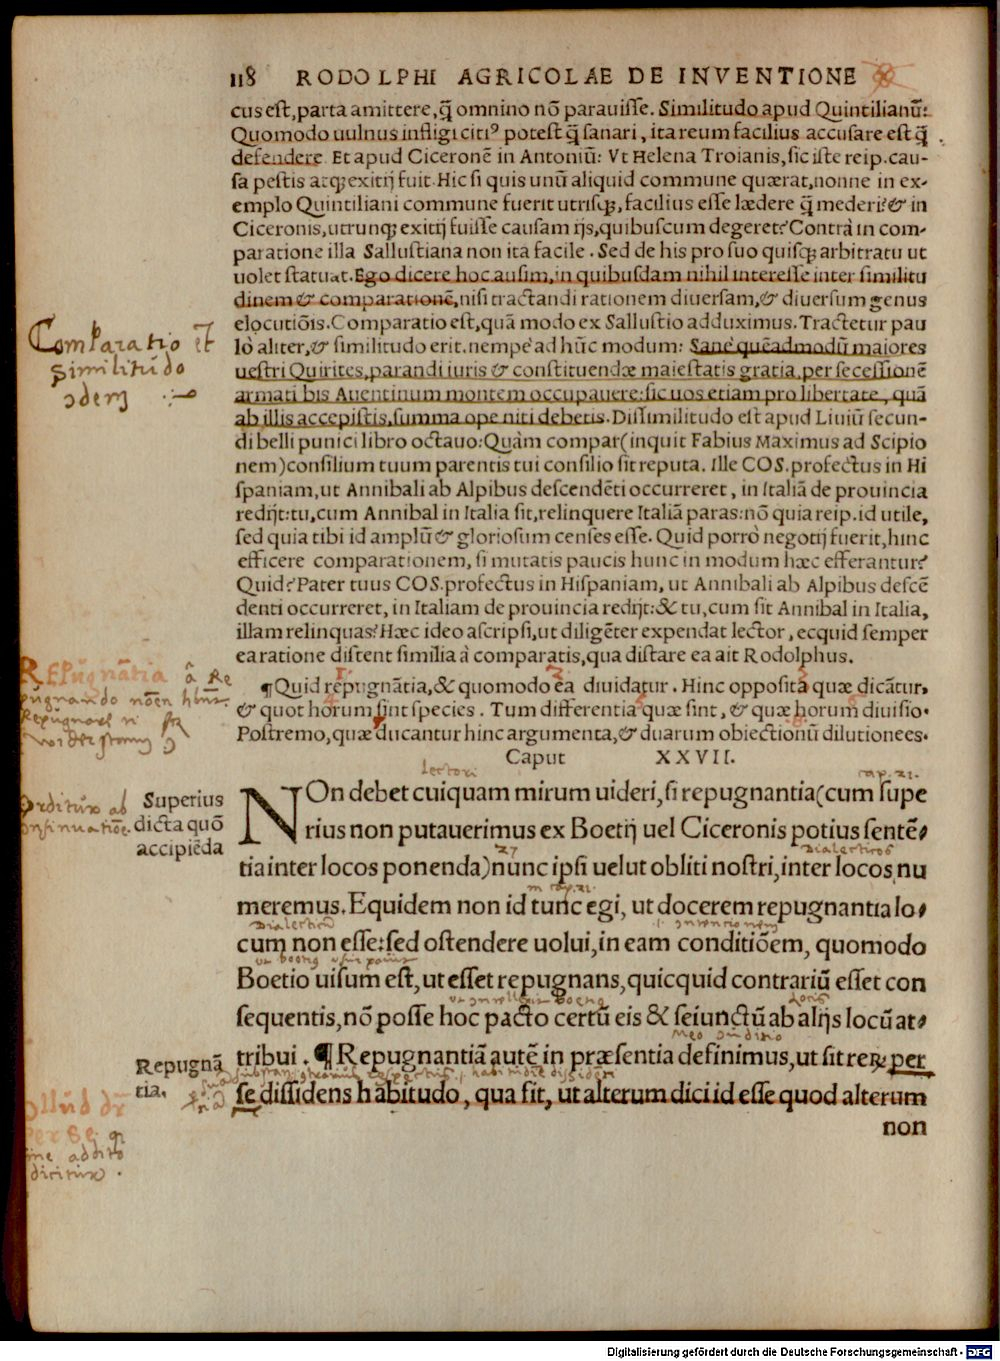 118 RODOLPHI AGRICOLAE DE INVENTIONE
cus est, parta amittere, q̃ omnino nõ parauisse. Similitudo apud Quintilianũ:
Quomodo uulnus infligi citiꝰ potest q̃ sanari, ita reum facilius accusare est q̃
defendere. Et apud Ciceronẽ in Antoniũ: Vt Helena Troianis, sic iste reip. cau-
sa pestis atqꝫ exitij fuit. Hic si quis unũ aliquid commune quærat, nonne in ex-
emplo Quintiliani commune fuerit utrisqꝫ, facilius esse lædere q̃ mederi? & in
Ciceronis, utrunqꝫ exitij fuisse causam ijs, quibuscum degeret? Contrà in com-
paratione illa Sallustiana non ita facile. Sed de his pro suo quisqꝫ arbitratu ut
uolet statuat. Ego dicere hoc ausim, in quibusdam nihil interesse inter similitu
dinem & comparationẽ, nisi tractandi rationem diuersam, & diuersum genus
elocutiõis. Comparatio est, quã modo ex Sallustio adduximus. Tractetur pau
lò aliter, & similitudo erit. nempe ad hũc modum: Sanè quẽadmodũ maiores
uestri Quirites, parandi iuris & constituendæ maiestatis gratia, per secessionẽ
armati bis Auentinum montem occupauere: sic uos etiam pro libertate, quã
ab illis accepistis, summa ope niti debetis. Dissimilitudo est apud Liuiũ secun-
di belli punici libro octauo: Quàm compar (inquit Fabius Maximus ad Scipio
nem) consilium tuum parentis tui consilio sit reputa. Ille COS. profectus in Hi
spaniam, ut Annibali ab Alpibus descendẽti occurreret, in Italiã de prouincia
redijt: tu, cum Annibal in Italia sit, relinquere Italiã paras: nõ quia reip. id utile,
sed quia tibi id amplũ & gloriosum censes esse. Quid porrò negotij fuerit, hinc
efficere comparationem, si mutatis paucis hunc in modum hæc efferantur?
Quid? Pater tuus COS. profectus in Hispaniam, ut Annibali ab Alpibus descẽ
denti occurreret, in Italiam de prouincia redijt: & tu, cum sit Annibal in Italia,
illam relinquas? Hæc ideo ascripsi, ut diligẽter expendat lector, ecquid semper
ea ratione distent similia à comparatis, qua distare ea ait Rodolphus.
Comparatio et
similitudo
¶ Quid repugnãtia, & quomodo ea diuidatur. Hinc opposita quæ dicãtur,
& quot horum sint species. Tum differentia quæ sint, & quæ horum diuisio.
Postremo, quæ ducantur hinc argumenta, & duarum obiectionũ dilutiones.
Repugnãtia â Re
pugnando
Caput XXVII.
lectori
cap. 21.
NOn debet cuiquam mirum uideri, si repugnantia (cum supe
rius non putauerimus ex Boetij uel Ciceronis potius sentẽ-
tia inter locos ponenda) nunc ipsi uelut obliti nostri, inter locos nu
meremus. Equidem non id tunc egi, ut docerem repugnantia lo-
cum non esse: sed ostendere uolui, in eam conditiõem, quomodo
Boetio uisum est, ut esset repugnans, quicquid contrariũ esset con
sequentis, nõ posse hoc pacto certũ eis & seiunctũ ab alijs locũ at-
tribui. ¶ Repugnantiã autẽ in præsentia definimus, ut sit reꝝ per
se dissidens habitudo, qua fit, ut alterum dici id esse quod alterum
non
Superius
dicta quõ
accipiẽda
Repugnã
tia.
per se
addito
dicitur
Digitalisierung gefördert durch die Deutsche Forschungsgemeinschaft - DFG